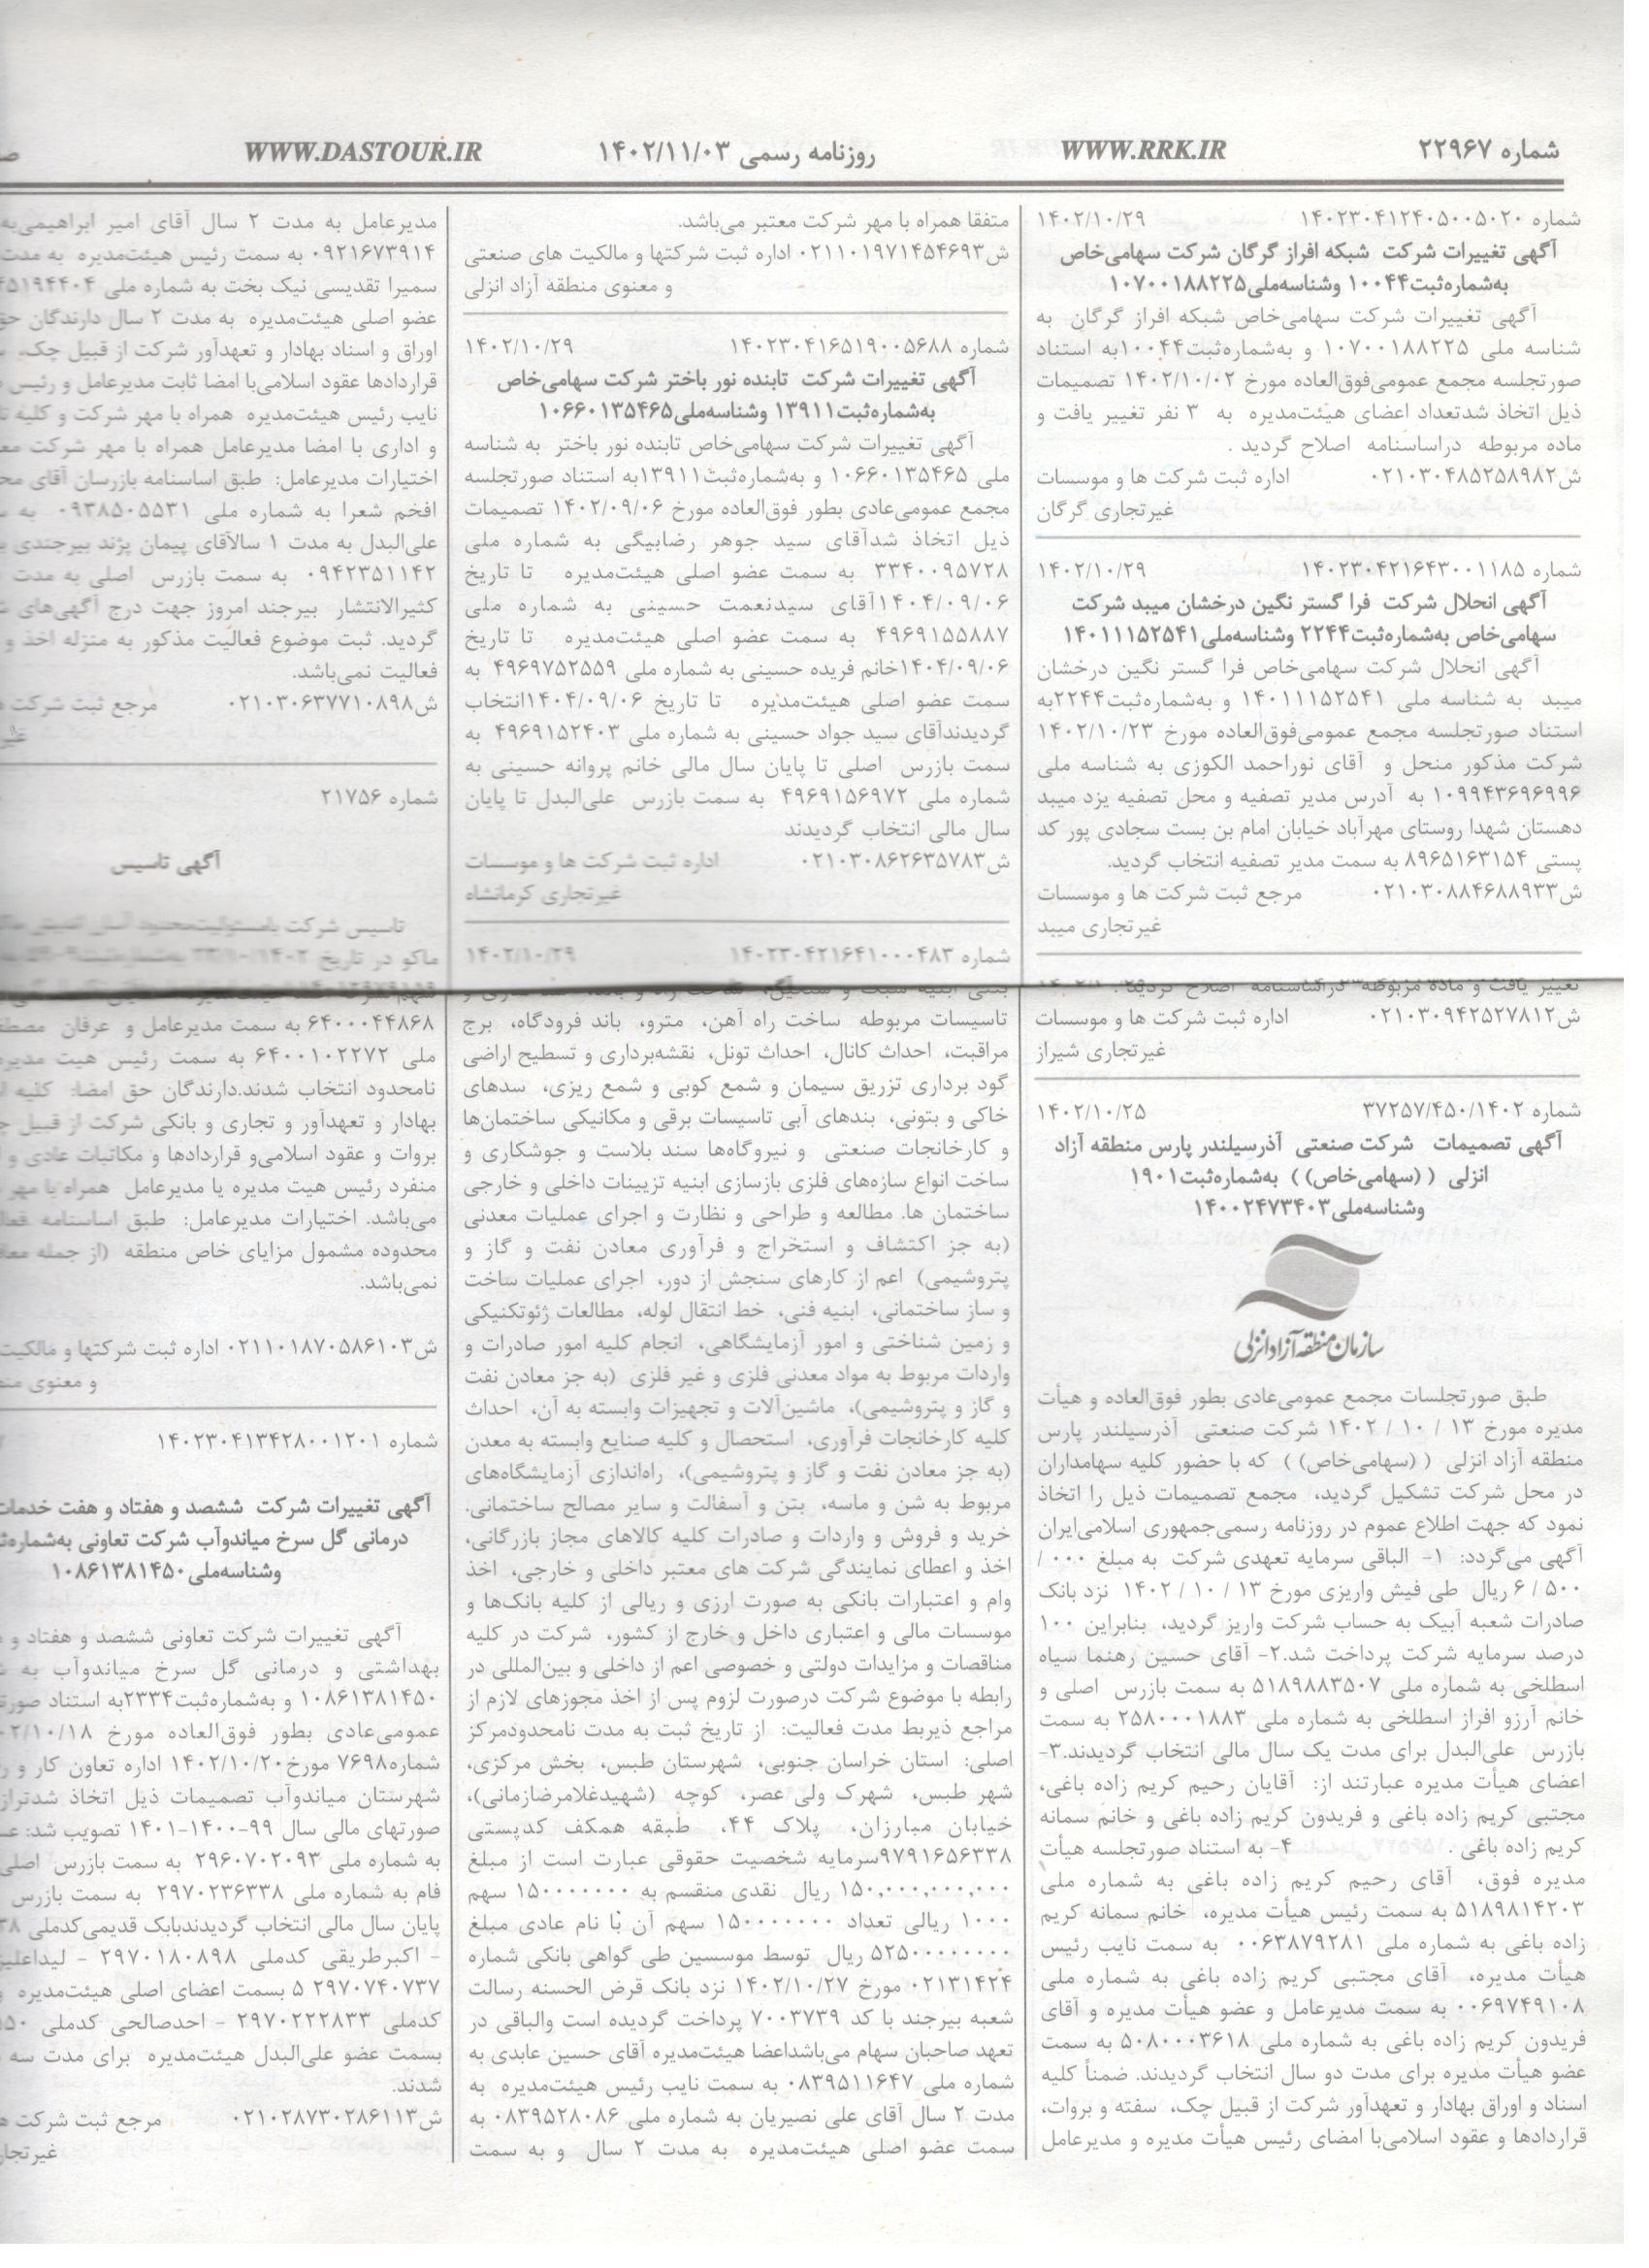 شماره ۲۲۹۶۷
WWW.RRK.IR
روزنامه رسمی ۱۴۰۲/۱۱/۰۳
WWW.DASTOUR.IR
شماره ۱۴۰۲۳۰۴۱۲۴۰۵۰۰۵۰۲۰ ۱۴۰۲/۱۰/۲۹
آگهی تغییرات شرکت شبکه افراز گرگان شرکت سهامی‌خاص
به‌شماره‌ثبت۱۰۰۴۴ وشناسه‌ملی۱۰۷۰۰۱۸۸۲۲۵
آگهی تغییرات شرکت سهامی‌خاص شبکه افراز گرگان به
شناسه ملی ۱۰۷۰۰۱۸۸۲۲۵ و به‌شماره‌ثبت۱۰۰۴۴به استناد
صورتجلسه مجمع عمومی‌فوق‌العاده مورخ ۱۴۰۲/۱۰/۰۲ تصمیمات
ذیل اتخاذ شدتعداد اعضای هیئت‌مدیره به ۳ نفر تغییر یافت و
ماده مربوطه دراساسنامه اصلاح گردید .
ش۰۲۱۰۳۰۴۸۵۲۵۸۹۸۲ اداره ثبت شرکت ها و موسسات
غیرتجاری گرگان
شماره ۱۴۰۲۳۰۴۲۱۶۴۳۰۰۱۱۸۵ ۱۴۰۲/۱۰/۲۹
آگهی انحلال شرکت فرا گستر نگین درخشان میبد شرکت
سهامی‌خاص به‌شماره‌ثبت۲۲۴۴ وشناسه‌ملی۱۴۰۱۱۱۵۲۵۴۱
آگهی انحلال شرکت سهامی‌خاص فرا گستر نگین درخشان
میبد به شناسه ملی ۱۴۰۱۱۱۵۲۵۴۱ و به‌شماره‌ثبت۲۲۴۴به
استناد صورتجلسه مجمع عمومی‌فوق‌العاده مورخ ۱۴۰۲/۱۰/۲۳
شرکت مذکور منحل و آقای نوراحمد الکوزی به شناسه ملی
۱۰۹۹۴۳۶۹۶۹۹۶ به آدرس مدیر تصفیه و محل تصفیه یزد میبد
دهستان شهدا روستای مهرآباد خیابان امام بن بست سجادی پور کد
پستی ۸۹۶۵۱۶۳۱۵۴ به سمت مدیر تصفیه انتخاب گردید.
ش۰۲۱۰۳۰۸۸۴۶۸۸۹۳۳ مرجع ثبت شرکت ها و موسسات
غیرتجاری میبد
تغییر یافت و ماده مربوطه دراساسنامه اصلاح گردید .
ش۰۲۱۰۳۰۹۴۲۵۲۷۸۱۲ اداره ثبت شرکت ها و موسسات
غیرتجاری شیراز
شماره ۳۷۲۵۷/۴۵۰/۱۴۰۲ ۱۴۰۲/۱۰/۲۵
آگهی تصمیمات شرکت صنعتی آذرسیلندر پارس منطقه آزاد
انزلی ((سهامی‌خاص)) به‌شماره‌ثبت۱۹۰۱
وشناسه‌ملی۱۴۰۰۲۴۷۳۴۰۳
سازمان منطقه آزاد انزلی
طبق صورتجلسات مجمع عمومی‌عادی بطور فوق‌العاده و هیأت
مدیره مورخ ۱۳ / ۱۰ / ۱۴۰۲ شرکت صنعتی آذرسیلندر پارس
منطقه آزاد انزلی ((سهامی‌خاص)) که با حضور کلیه سهامداران
در محل شرکت تشکیل گردید، مجمع تصمیمات ذیل را اتخاذ
نمود که جهت اطلاع عموم در روزنامه رسمی‌جمهوری اسلامی‌ایران
آگهی می‌گردد: ۱- الباقی سرمایه تعهدی شرکت به مبلغ ۰۰۰ /
۵۰۰ / ۶ ریال طی فیش واریزی مورخ ۱۳ / ۱۰ / ۱۴۰۲ نزد بانک
صادرات شعبه آبیک به حساب شرکت واریز گردید، بنابراین ۱۰۰
درصد سرمایه شرکت پرداخت شد.۲- آقای حسین رهنما سیاه
اسطلخی به شماره ملی ۵۱۸۹۸۸۳۵۰۷ به سمت بازرس اصلی و
خانم آرزو افراز اسطلخی به شماره ملی ۲۵۸۰۰۰۱۸۸۳ به سمت
بازرس علی‌البدل برای مدت یک سال مالی انتخاب گردیدند.۳-
اعضای هیأت مدیره عبارتند از: آقایان رحیم کریم زاده باغی،
مجتبی کریم زاده باغی و فریدون کریم زاده باغی و خانم سمانه
کریم زاده باغی . ۴- به استناد صورتجلسه هیأت
مدیره فوق، آقای رحیم کریم زاده باغی به شماره ملی
۵۱۸۹۸۱۴۲۰۳ به سمت رئیس هیأت مدیره، خانم سمانه کریم
زاده باغی به شماره ملی ۰۰۶۳۸۷۹۲۸۱ به سمت نایب رئیس
هیأت مدیره، آقای مجتبی کریم زاده باغی به شماره ملی
۰۰۶۹۷۴۹۱۰۸ به سمت مدیرعامل و عضو هیأت مدیره و آقای
فریدون کریم زاده باغی به شماره ملی ۵۰۸۰۰۰۳۶۱۸ به سمت
عضو هیأت مدیره برای مدت دو سال انتخاب گردیدند. ضمناً کلیه
اسناد و اوراق بهادار و تعهدآور شرکت از قبیل چک، سفته و بروات،
قراردادها و عقود اسلامی‌با امضای رئیس هیأت مدیره و مدیرعامل
متفقا همراه با مهر شرکت معتبر می‌باشد.
ش۰۲۱۱۰۱۹۷۱۴۵۴۶۹۳ اداره ثبت شرکتها و مالکیت های صنعتی
و معنوی منطقه آزاد انزلی
شماره ۱۴۰۲۳۰۴۱۶۵۱۹۰۰۵۶۸۸ ۱۴۰۲/۱۰/۲۹
آگهی تغییرات شرکت تابنده نور باختر شرکت سهامی‌خاص
به‌شماره‌ثبت۱۳۹۱۱ وشناسه‌ملی۱۰۶۶۰۱۳۵۴۶۵
آگهی تغییرات شرکت سهامی‌خاص تابنده نور باختر به شناسه
ملی ۱۰۶۶۰۱۳۵۴۶۵ و به‌شماره‌ثبت۱۳۹۱۱به استناد صورتجلسه
مجمع عمومی‌عادی بطور فوق‌العاده مورخ ۱۴۰۲/۰۹/۰۶ تصمیمات
ذیل اتخاذ شدآقای سید جوهر رضابیگی به شماره ملی
۳۳۴۰۰۹۵۷۲۸ به سمت عضو اصلی هیئت‌مدیره تا تاریخ
۱۴۰۴/۰۹/۰۶آقای سیدنعمت حسینی به شماره ملی
۴۹۶۹۱۵۵۸۸۷ به سمت عضو اصلی هیئت‌مدیره تا تاریخ
۱۴۰۴/۰۹/۰۶خانم فریده حسینی به شماره ملی ۴۹۶۹۷۵۲۵۵۹ به
سمت عضو اصلی هیئت‌مدیره تا تاریخ ۱۴۰۴/۰۹/۰۶انتخاب
گردیدندآقای سید جواد حسینی به شماره ملی ۴۹۶۹۱۵۲۴۰۳ به
سمت بازرس اصلی تا پایان سال مالی خانم پروانه حسینی به
شماره ملی ۴۹۶۹۱۵۶۹۷۲ به سمت بازرس علی‌البدل تا پایان
سال مالی انتخاب گردیدند
ش۰۲۱۰۳۰۸۶۲۶۳۵۷۸۳ اداره ثبت شرکت ها و موسسات
غیرتجاری کرمانشاه
شماره ۱۴۰۲۳۰۴۲۱۶۴۱۰۰۰۴۸۳ ۱۴۰۲/۱۰/۲۹
تاسیسات مربوطه ساخت راه آهن، مترو، باند فرودگاه، برج
مراقبت، احداث کانال، احداث تونل، نقشه‌برداری و تسطیح اراضی
گود برداری تزریق سیمان و شمع کوبی و شمع ریزی، سدهای
خاکی و بتونی، بندهای آبی تاسیسات برقی و مکانیکی ساختمان‌ها
و کارخانجات صنعتی و نیروگاه‌ها سند بلاست و جوشکاری و
ساخت انواع سازه‌های فلزی بازسازی ابنیه تزیینات داخلی و خارجی
ساختمان ها. مطالعه و طراحی و نظارت و اجرای عملیات معدنی
(به جز اکتشاف و استخراج و فرآوری معادن نفت و گاز و
پتروشیمی) اعم از کارهای سنجش از دور، اجرای عملیات ساخت
و ساز ساختمانی، ابنیه فنی، خط انتقال لوله، مطالعات ژئوتکنیکی
و زمین شناختی و امور آزمایشگاهی، انجام کلیه امور صادرات و
واردات مربوط به مواد معدنی فلزی و غیر فلزی (به جز معادن نفت
و گاز و پتروشیمی)، ماشین‌آلات و تجهیزات وابسته به آن، احداث
کلیه کارخانجات فرآوری، استحصال و کلیه صنایع وابسته به معدن
(به جز معادن نفت و گاز و پتروشیمی)، راه‌اندازی آزمایشگاه‌های
مربوط به شن و ماسه، بتن و آسفالت و سایر مصالح ساختمانی.
خرید و فروش و واردات و صادرات کلیه کالاهای مجاز بازرگانی،
اخذ و اعطای نمایندگی شرکت های معتبر داخلی و خارجی، اخذ
وام و اعتبارات بانکی به صورت ارزی و ریالی از کلیه بانک‌ها و
موسسات مالی و اعتباری داخل و خارج از کشور، شرکت در کلیه
مناقصات و مزایدات دولتی و خصوصی اعم از داخلی و بین‌المللی در
رابطه با موضوع شرکت درصورت لزوم پس از اخذ مجوزهای لازم از
مراجع ذیربط مدت فعالیت: از تاریخ ثبت به مدت نامحدودمرکز
اصلی: استان خراسان جنوبی، شهرستان طبس، بخش مرکزی،
شهر طبس، شهرک ولی عصر، کوچه (شهیدغلامرضازمانی)،
خیابان مبارزان، پلاک ۴۴، طبقه همکف کدپستی
۹۷۹۱۶۵۶۳۳۸سرمایه شخصیت حقوقی عبارت است از مبلغ
۱۵۰,۰۰۰,۰۰۰,۰۰۰ ریال نقدی منقسم به ۱۵۰۰۰۰۰۰۰ سهم
۱۰۰۰ ریالی تعداد ۱۵۰۰۰۰۰۰۰ سهم آن با نام عادی مبلغ
۵۲۵۰۰۰۰۰۰۰۰ ریال توسط موسسین طی گواهی بانکی شماره
۰۲۱۳۱۴۲۴ مورخ ۱۴۰۲/۱۰/۲۷ نزد بانک قرض الحسنه رسالت
شعبه بیرجند با کد ۷۰۰۳۷۳۹ پرداخت گردیده است والباقی در
تعهد صاحبان سهام می‌باشداعضا هیئت‌مدیره آقای حسین عابدی به
شماره ملی ۰۸۳۹۵۱۱۶۴۷ به سمت نایب رئیس هیئت‌مدیره به
مدت ۲ سال آقای علی نصیریان به شماره ملی ۰۸۳۹۵۲۸۰۸۶ به
سمت عضو اصلی هیئت‌مدیره به مدت ۲ سال و به سمت
مدیرعامل به مدت ۲ سال آقای امیر ابراهیمی‌به
۰۹۲۱۶۷۳۹۱۴ به سمت رئیس هیئت‌مدیره به مدت
سمیرا تقدیسی نیک بخت به شماره ملی
عضو اصلی هیئت‌مدیره به مدت ۲ سال دارندگان
اوراق و اسناد بهادار و تعهدآور شرکت از قبیل چک،
قراردادها عقود اسلامی‌با امضا ثابت مدیرعامل و رئیس
نایب رئیس هیئت‌مدیره همراه با مهر شرکت و کلیه
و اداری با امضا مدیرعامل همراه با مهر شرکت
اختیارات مدیرعامل: طبق اساسنامه بازرسان آقای
افخم شعرا به شماره ملی ۰۹۳۸۵۰۵۵۳۱ به
علی‌البدل به مدت ۱ سالآقای پیمان پژند بیرجندی
۰۹۴۲۳۵۱۱۴۲ به سمت بازرس اصلی به مدت
کثیرالانتشار بیرجند امروز جهت درج آگهی‌های
گردید. ثبت موضوع فعالیت مذکور به منزله اخذ و
فعالیت نمی‌باشد.
ش۰۲۱۰۳۰۶۳۷۷۱۰۸۹۸ مرجع ثبت شرکت
شماره ۲۱۷۵۶
آگهی تاسیس
تاسیس شرکت بامسئولیت‌محدود
ماکو در تاریخ
۶۴۰۰۰۴۴۸۶۸ به سمت مدیرعامل و عرفان
ملی ۶۴۰۰۱۰۲۲۷۲ به سمت رئیس هیت مدیره
نامحدود انتخاب شدند.دارندگان حق امضا: کلیه
بهادار و تعهدآور و تجاری و بانکی شرکت از قبیل
بروات و عقود اسلامی‌و قراردادها و مکاتبات عادی و
منفرد رئیس هیت مدیره یا مدیرعامل همراه با مهر
می‌باشد. اختیارات مدیرعامل: طبق اساسنامه
محدوده مشمول مزایای خاص منطقه (از جمله
نمی‌باشد.
ش۰۲۱۱۰۱۸۷۰۵۸۶۱۰۳ اداره ثبت شرکتها و مالکیت
و معنوی
شماره ۱۴۰۲۳۰۴۱۳۴۲۸۰۰۱۲۰۱
آگهی تغییرات شرکت ششصد و هفتاد و هفت خدمات
درمانی گل سرخ میاندوآب شرکت تعاونی
وشناسه‌ملی۱۰۸۶۱۳۸۱۴۵۰
آگهی تغییرات شرکت تعاونی ششصد و هفتاد و
بهداشتی و درمانی گل سرخ میاندوآب به
۱۰۸۶۱۳۸۱۴۵۰ و به‌شماره‌ثبت۲۳۳۴به استناد
عمومی‌عادی بطور فوق‌العاده مورخ
شماره۷۶۹۸ مورخ۱۴۰۲/۱۰/۲۰ اداره تعاون کار و
شهرستان میاندوآب تصمیمات ذیل اتخاذ
صورتهای مالی سال ۹۹-۱۴۰۰-۱۴۰۱ تصویب شد:
به شماره ملی ۲۹۶۰۷۰۲۰۹۳ به سمت بازرس اصلی
فام به شماره ملی ۲۹۷۰۲۳۶۳۳۸ به سمت بازرس
پایان سال مالی انتخاب گردیدندبابک قدیمی‌کدملی
- اکبرطریقی کدملی ۲۹۷۰۱۸۰۸۹۸ -
۲۹۷۰۷۴۰۷۳۷ ۵ بسمت اعضای اصلی هیئت‌مدیره
کدملی ۲۹۷۰۲۲۲۸۳۳ - احدصالحی کدملی
بسمت عضو علی‌البدل هیئت‌مدیره برای مدت سه
شدند.
ش۰۲۱۰۲۸۷۳۰۲۸۶۱۱۳ مرجع ثبت شرکت